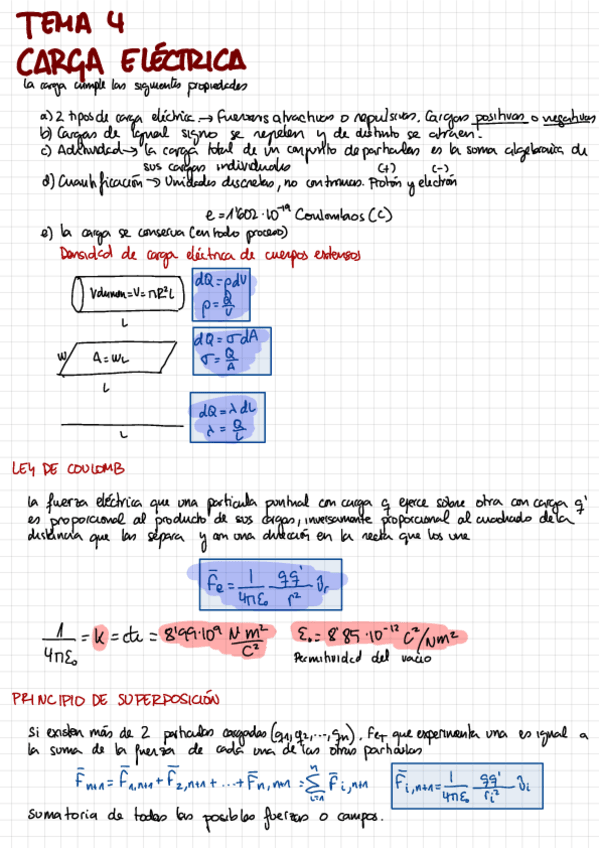 TEMA 4
CARGA ELÉCTRICA
La carga cumple las siguientes propiedades
a) 2 tipos de carga eléctrica → Fuerzas atractivas o repulsivas. Cargas positivas o negativas
b) Cargas de igual signo se repelen y de distinto se atraen.
c) Aditividad → la carga total de un conjunto de partículas es la suma algebraica de
sus cargas individuales
(+) (-)
d) Cuantificación → Unidades discretas, no continuas. Protón y electrón
e = 1'602·10⁻¹⁹ Coulombios (C)
e) la carga se conserva (en todo proceso)
Densidad de carga eléctrica de cuerpos extensos
Volumen = V = πR²L
dQ = ρdV
ρ = Q/V
L
W
A = WL
dQ = σdA
σ = Q/A
L
dQ = λdL
λ = Q/L
L
LEY DE COULOMB
La fuerza eléctrica que una partícula puntual con carga q ejerce sobre otra con carga q'
es proporcional al producto de sus cargas, inversamente proporcional al cuadrado de la
distancia que las separa y en una dirección en la recta que los une
F̄e = 1/4πε₀ qq'/r² ûr
1/4πε₀ = k = cte = 8'99·10⁹ N m²/C² ε₀ = 8'85·10⁻¹² C²/Nm²
Permitividad del vacío
PRINCIPIO DE SUPERPOSICIÓN
Si existen más de 2 partículas cargadas (q₁, q₂, ..., qn). FeT que experimenta una es igual a
la suma de la fuerza de cada una de las otras partículas
F̄n+1 = F̄1,n+1 + F̄2,n+1 + ... + F̄n,n+1 = Σⁿi=1 F̄i,n+1 F̄i,n+1 = 1/4πε₀ qq'/ri² ûi
Sumatoria de todas las posibles fuerzas o campos.